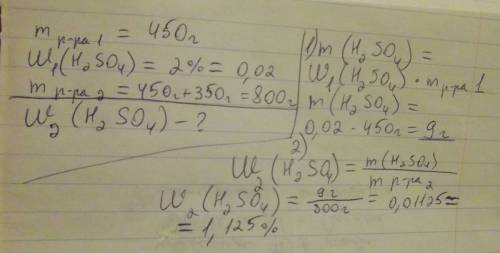 m р-ра 1 = 450г
W₁(H₂SO₄) = 2% = 0,02
m р-ра 2 = 450г+350г=800г
W₂ (H₂SO₄) - ?
1) m (H₂SO₄) =
W₁(H₂SO₄) · m р-ра 1
m (H₂SO₄) =
0,02 · 450г = 9г
2)
W₂ (H₂SO₄) = m(H₂SO₄) / m р-ра 2
W₂ (H₂SO₄) = 9г / 800г = 0,01125 =
= 1,125%